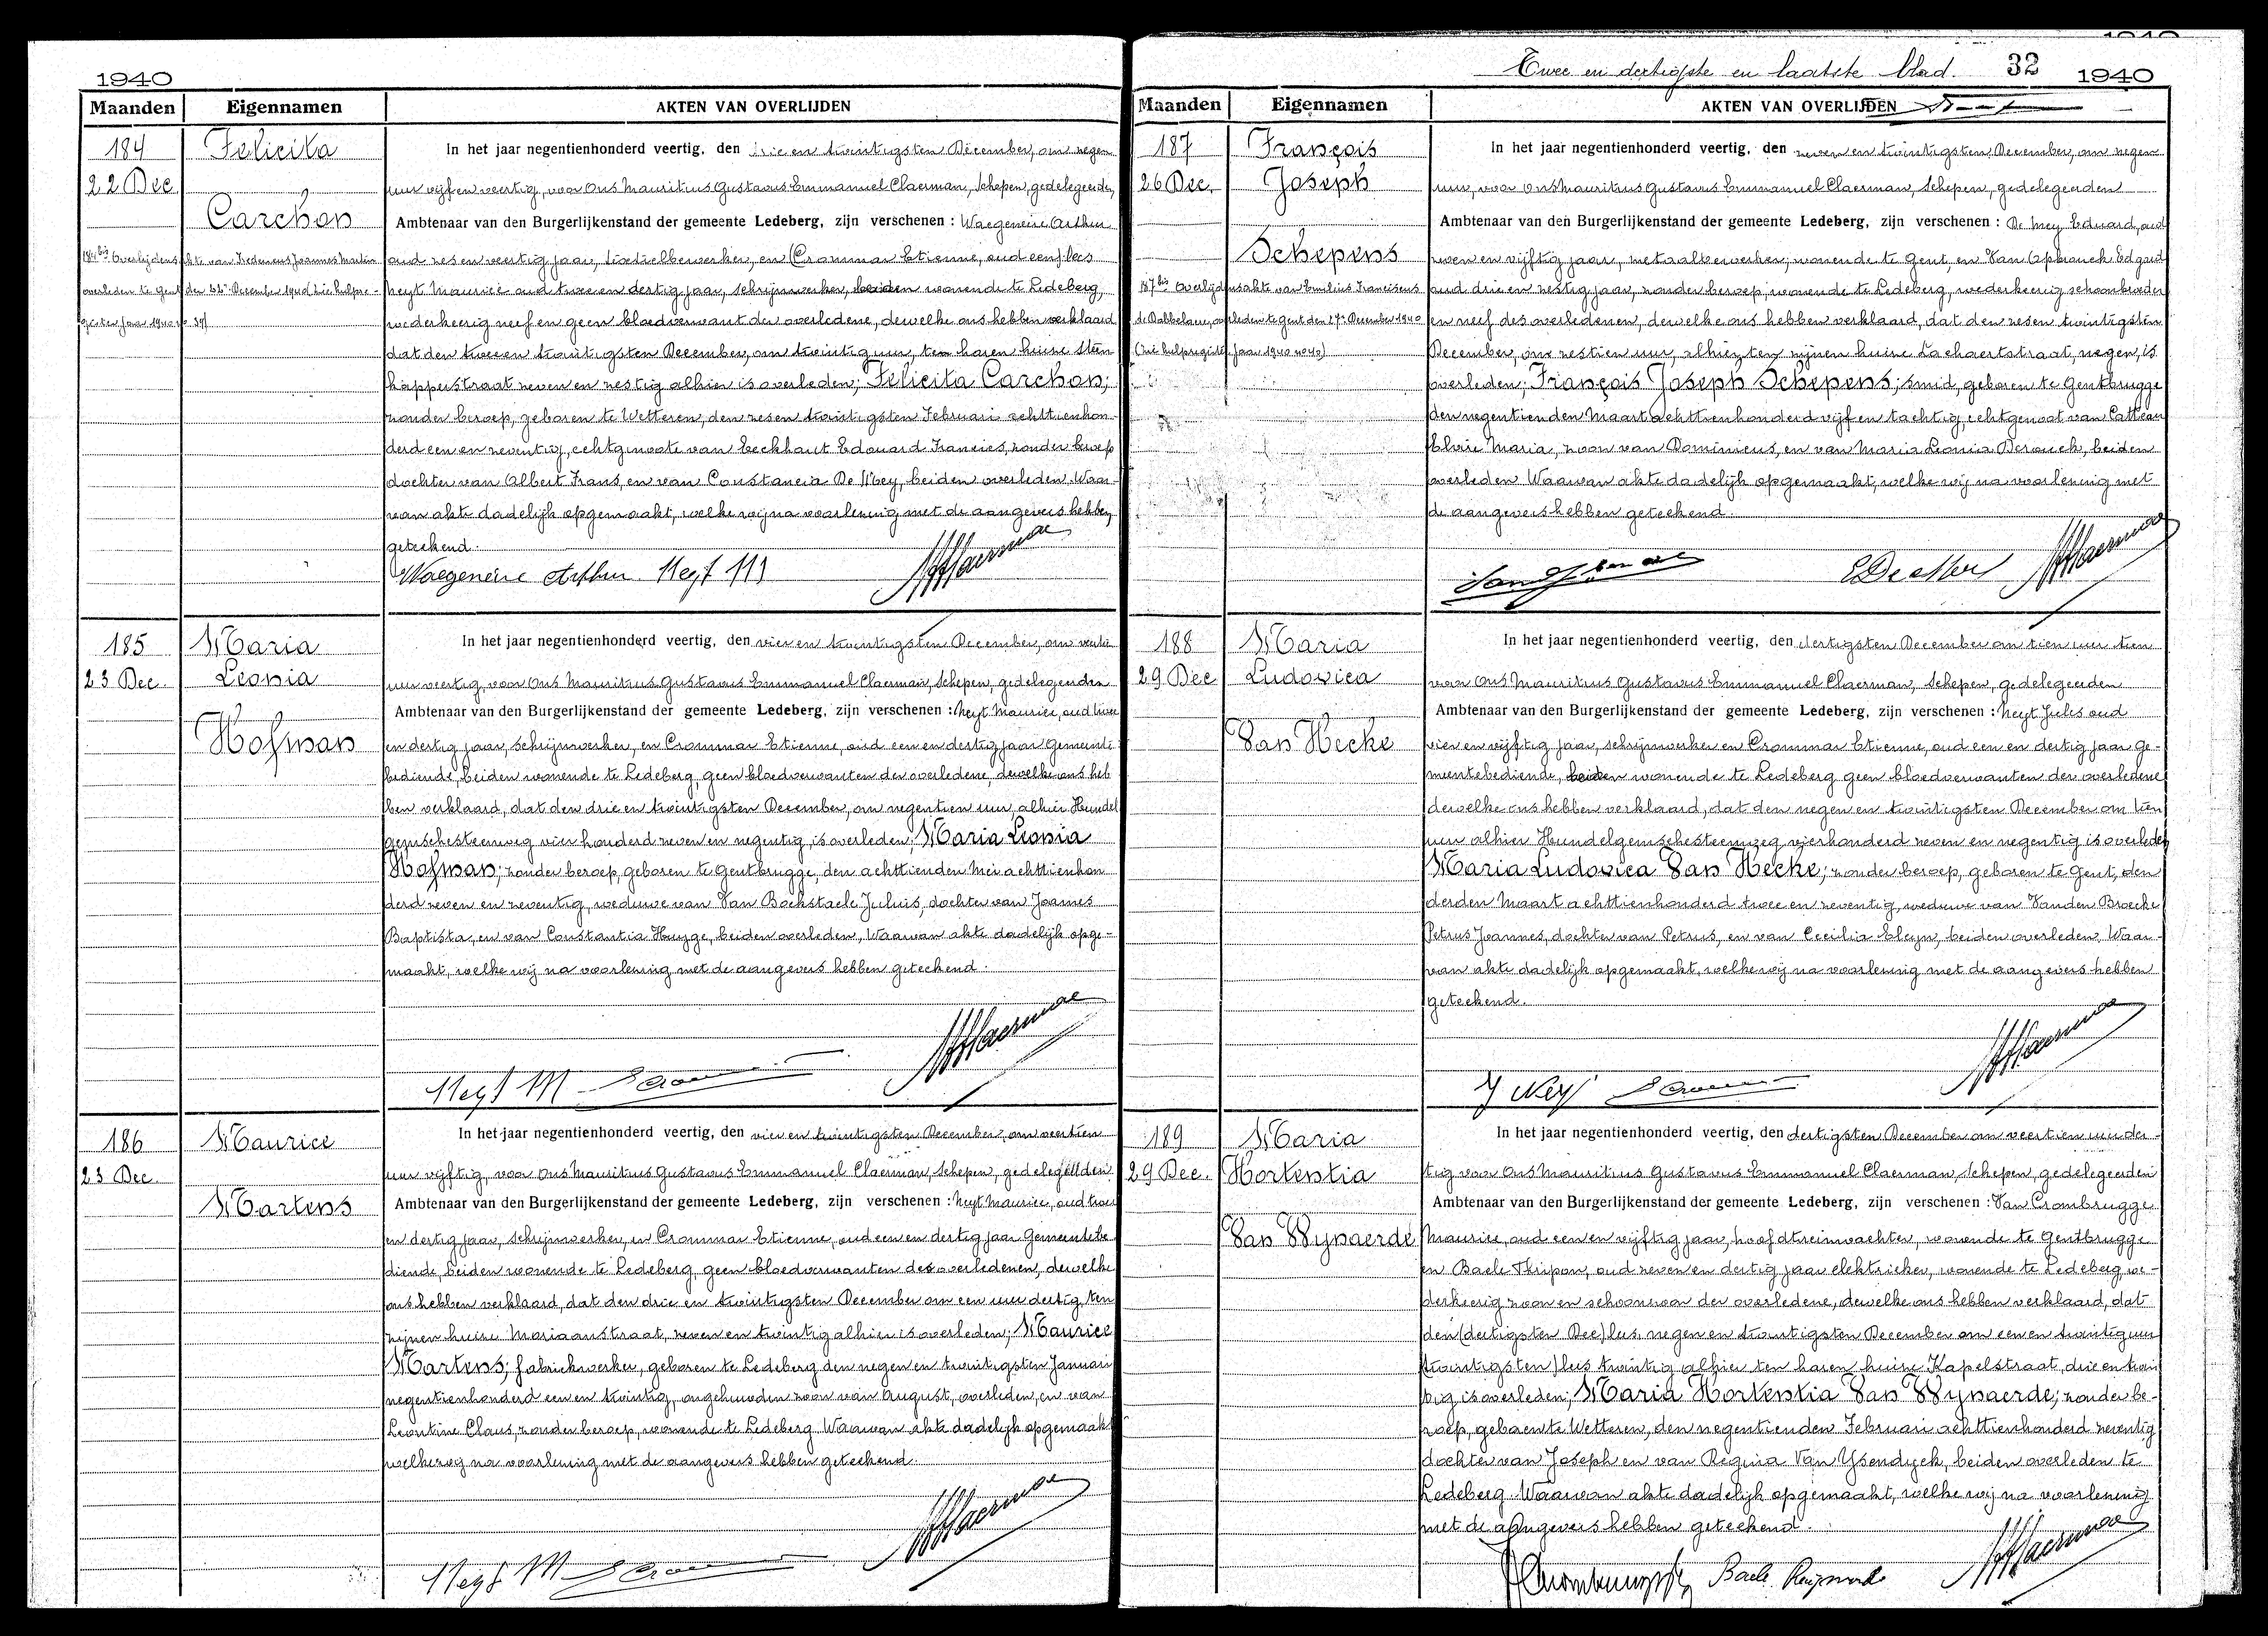 1940
Maanden Eigennamen AKTEN VAN OVERLIJDEN
184
22 Dec
Felicita
Carchon
184bis Overlijdensakte van Fredericus Joannes Martin
overleden te Gent den 22n December 1940 zie hulpre-
gister jaar 1940 no 39)
In het jaar negentienhonderd veertig, den drie en twintigsten December, om negen
uur vijf en veertig, voor Ons Mauritius Gustavus Emmanuel Claerman, Schepen, gedelegeerden
Ambtenaar van den Burgerlijkenstand der gemeente Ledeberg, zijn verschenen : Waegeneire Arthur
oud zes en veertig jaar, textielbewerker, en (Crommar Etienne, oud een) lees
Neyt Maurice oud twee en dertig jaar, schrijnwerker, beiden wonende te Ledeberg,
wederkeerig neef en geen bloedverwant der overledene, dewelke ons hebben verklaard
dat den twee en twintigsten December, om twintig uur, ten haren huize Steen
kapperstraat zeven en zestig alhier is overleden; Felicita Carchon;
zonder beroep, geboren te Wetteren, den zesen twintigsten Februari achttienhon-
derd een en zeventig, echtgenoote van Eeckhaut Edouard Francies, zonder beroep
dochter van Albert Frans, en van Constancia De Mey, beiden overleden. Waar-
van akte dadelijk opgemaakt, welke wij na voorlezing met de aangevers hebben
geteekend.
Waegeneire Arthur Neyt M
185
23 Dec.
Maria
Leonia
Hofman
In het jaar negentienhonderd veertig, den vier en twintigsten December, om veertien
uur veertig, voor Ons Mauritius Gustavus Emmanuel Claerman, Schepen, gedelegeerden
Ambtenaar van den Burgerlijkenstand der gemeente Ledeberg, zijn verschenen : Neyt Maurice, oud twee
en dertig jaar, schrijnwerker, en Crommar Etienne, oud een en dertig jaar Gemeente
bediende, beiden wonende te Ledeberg, geen bloedverwanten der overledene, dewelke ons heb
ben verklaard, dat den drie en twintigsten December, om negentien uur, alhier Hundel
gemschesteenweg vier honderd zeven en negentig, is overleden: Maria Leonia
Hofman; zonder beroep, geboren te Gentbrugge, den achttienden Mei achttienhon
derd zeven en zeventig, weduwe van Van Bockstaele Julius, dochter van Joannes
Baptista, en van Constantia Huyge, beiden overleden, Waarvan akte dadelijk opge-
maakt, welke wij na voorlezing met de aangevers hebben geteekend.
Neyt M
186
23 Dec.
Maurice
Martens
In het jaar negentienhonderd veertig, den vier en twintigsten December, om veertien
uur vijftig, voor Ons Mauritius Gustavus Emmanuel Claerman, Schepen, gedelegeerden
Ambtenaar van den Burgerlijkenstand der gemeente Ledeberg, zijn verschenen : Neyt Maurice, oud twee
en dertig jaar, schrijnwerker, en Crommar Etienne, oud een en dertig jaar Gemeentebe
diende, beiden wonende te Ledeberg, geen bloedverwanten des overledenen, dewelke
ons hebben verklaard, dat den drie en twintigsten December om een uur dertig, ten
zijnen huize Mariaanstraat, zeven en twintig alhier is overleden; Maurice
Martens; fabriekwerker, geboren te Ledeberg den negen en twintigsten Januari
negentienhonderd een en twintig, ongehuwden zoon van August, overleden, en van
Leontine Claus, zonder beroep, wonende te Ledeberg. Waarvan akte dadelijk opgemaakt
welke wij na voorlezing met de aangevers hebben geteekend.
Neyt M
Twee en dertigste en laatste blad. 32 1940
Maanden Eigennamen AKTEN VAN OVERLIJDEN
187
26 Dec.
François
Joseph
Schepens
187bis Overlijdensakte van Emilius Franciscus
de Rabbelaere, overleden te Gent den 27n December 1940
(zie hulpregister jaar 1940 no 40)
In het jaar negentienhonderd veertig, den zeven en twintigsten December, om negen
uur, voor Ons Mauritius Gustavus Emmanuel Claerman, Schepen, gedelegeerden
Ambtenaar van den Burgerlijkenstand der gemeente Ledeberg, zijn verschenen : De Mey Eduard, oud
zeven en vijftig jaar, metaalbewerker, wonende te Gent, en Van Opbrouck Edgard
oud drie en zestig jaar, zonder beroep, wonende te Ledeberg, wederkeerig schoonbroeder
en neef des overledenen, dewelke ons hebben verklaard, dat den zesen twintigsten
December, om zestien uur, alhier ten zijnen huize Lachaertstraat, negen, is
overleden; François Joseph Schepens; smid, geboren te Gentbrugge
den negentienden Maart achttienhonderd vijf en tachtig, echtgenoot van Catteau
Elvire Maria, zoon van Dominicus, en van Maria Leonia Derouck, beiden
overleden. Waarvan akte dadelijk opgemaakt, welke wij na voorlezing met
de aangevers hebben geteekend.
188
29 Dec
Maria
Ludovica
Van Hecke
In het jaar negentienhonderd veertig, den dertigsten December om tien uur tien
voor Ons Mauritius Gustavus Emmanuel Claerman, Schepen, gedelegeerden
Ambtenaar van den Burgerlijkenstand der gemeente Ledeberg, zijn verschenen : Neyt Jules oud
vier en vijftig jaar, schrijnwerker en Crommar Etienne, oud een en dertig jaar ge-
meentebediende, beiden wonende te Ledeberg geen bloedverwanten der overledene
dewelke ons hebben verklaard, dat den negen en twintigsten December om tien
uur alhier Hundelgemschesteenweg vierhonderd zeven en negentig is overleden
Maria Ludovica Van Hecke; zonder beroep, geboren te Gent, den
derden Maart achttienhonderd twee en zeventig, weduwe van Vanden Broecke
Petrus Joannes, dochter van Petrus, en van Cecilia Eleyn, beiden overleden, Waar-
van akte dadelijk opgemaakt, welke wij na voorlezing met de aangevers hebben
geteekend.
J Neyt
189
29 Dec.
Maria
Hortentia
Van Wynaerde
In het jaar negentienhonderd veertig, den dertigsten December om veertien uur der-
tig voor Ons Mauritius Gustavus Emmanuel Claerman, Schepen, gedelegeerden
Ambtenaar van den Burgerlijkenstand der gemeente Ledeberg, zijn verschenen : Van Crombrugge
Maurice, oud een en vijftig jaar, hoofdtreinwachter, wonende te Gentbrugge
en Baele Thripon, oud zeven en dertig jaar elektrieker, wonende te Ledeberg, we-
derkeerig zoon en schoonzoon der overledene, dewelke ons hebben verklaard, dat
den (dertigsten Dec) lees, negen en twintigsten December om een en twintig uur
(twintigsten) lees twintig alhier ten haren huize Kapelstraat, drie en twin
tig is overleden; Maria Hortentia Van Wynaerde; zonder be-
roep, geboren te Wetteren, den negentienden Februari achttienhonderd zeventig
dochter van Joseph en van Regina Van Ysendyck, beiden overleden te
Ledeberg. Waarvan akte dadelijk opgemaakt, welke wij na voorlezing
met de aangevers hebben geteekend.